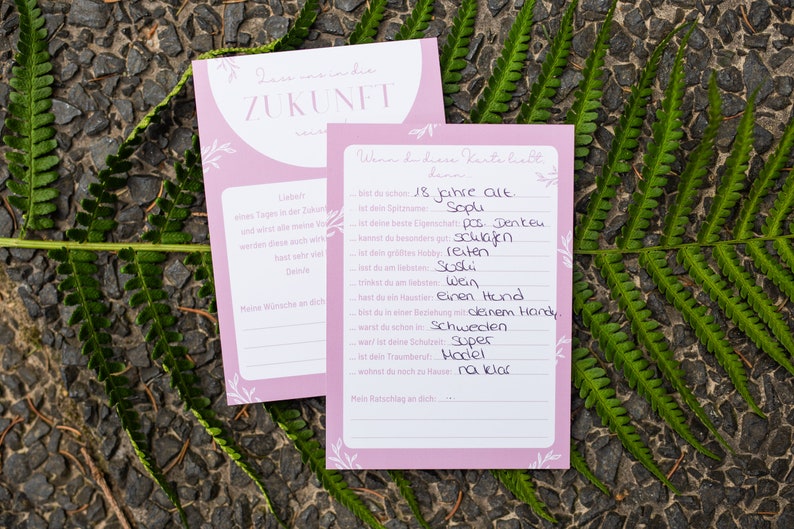 Lass uns in die
ZUKUNFT
Liebe/r
eines Tages in der Zukun
und wirst alle meine Vo
werden diese auch wirk
hast sehr viel
Dein/e
Meine Wünsche an dich
Wenn du diese Karte liebt,
dann...
... bist du schon: 18 Jahre alt.
... ist dein Spitzname: Soph
... ist deine beste Eigenschaft: pos. Denken
... kannst du besonders gut: schlafen
... ist dein größtes Hobby: reiten
... isst du am liebsten: Sushi
... trinkst du am liebsten: Wein
... hast du ein Haustier: einen Hund
... bist du in einer Beziehung mit: deinem Handy.
... warst du schon in: schweden
... war/ ist deine Schulzeit: super
... ist dein Traumberuf: Model
... wohnst du noch zu Hause: na klar
Mein Ratschlag an dich: ..